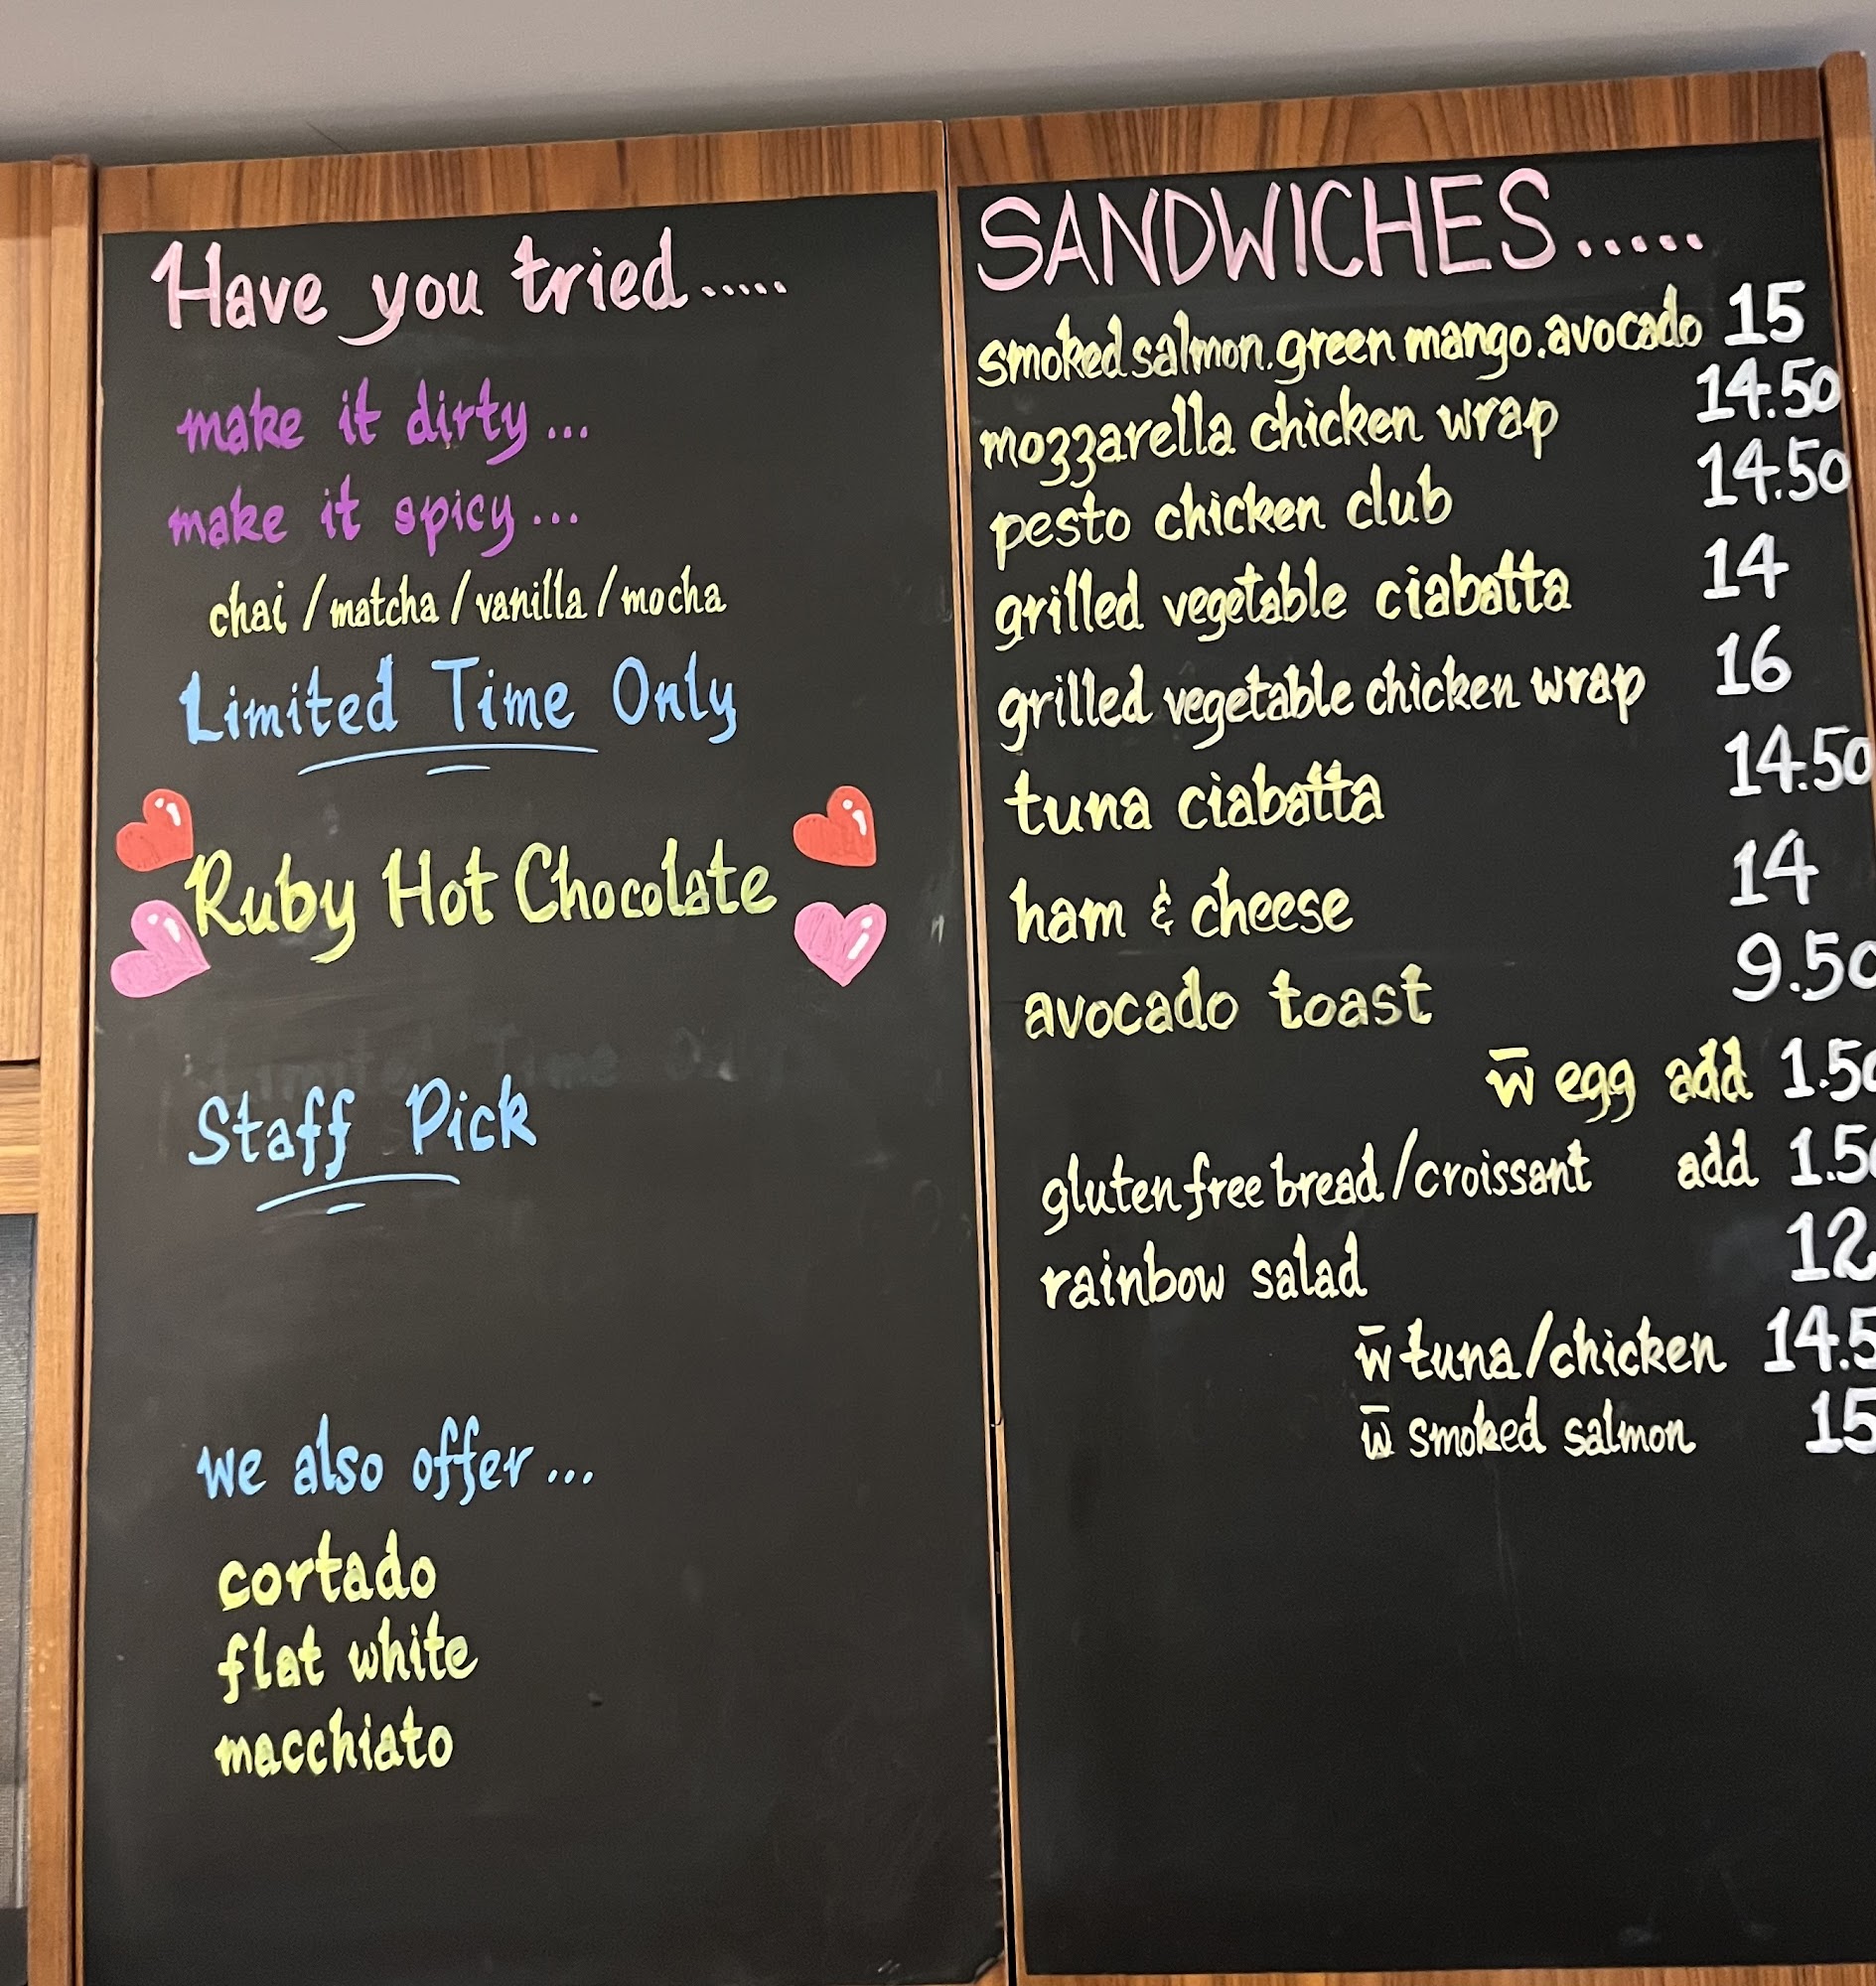 Have you tried.....
make it dirty...
make it spicy...
chai / matcha / vanilla / mocha
Limited Time Only
Ruby Hot Chocolate
Staff Pick
we also offer...
cortado
flat white
macchiato
SANDWICHES.....
smoked salmon.green mango.avocado 15
mozzarella chicken wrap 14.50
pesto chicken club 14.50
grilled vegetable ciabatta 14
grilled vegetable chicken wrap 16
tuna ciabatta 14.50
ham & cheese 14
avocado toast 9.50
w̅ egg add 1.50
gluten free bread/croissant add 1.50
rainbow salad 12
w̅ tuna/chicken 14.5
w̅ smoked salmon 15